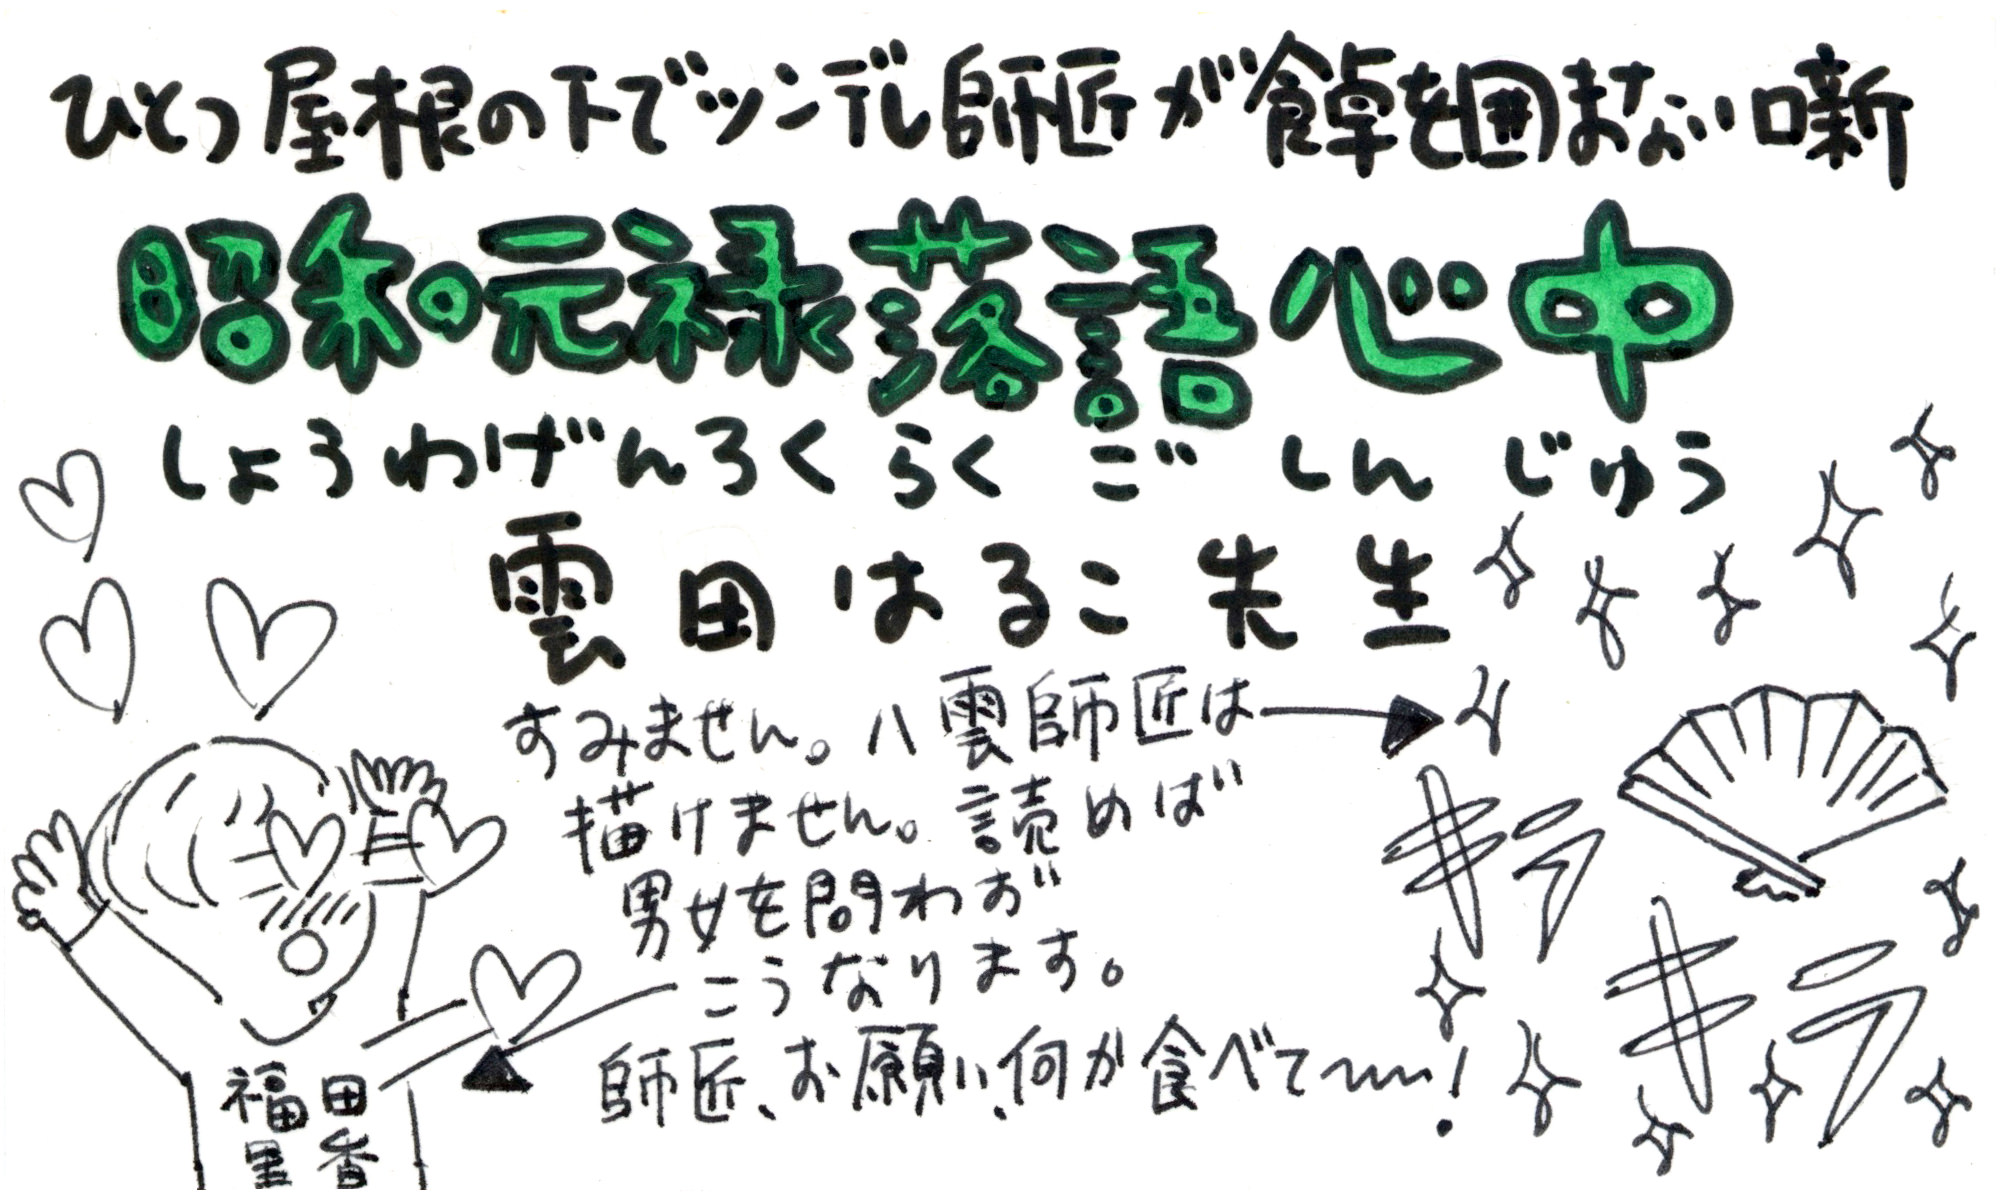 ひとつ屋根の下でツンデレ師匠が食卓を囲まない噺
昭和元禄落語心中
しょうわげんろくらくごしんじゅう
雲田はるこ先生
すみません。八雲師匠は
描けません。読めば
男女を問わず
こうなります。
師匠、お願い、何か食べて〜〜!
キラ
キラ
福田
里香